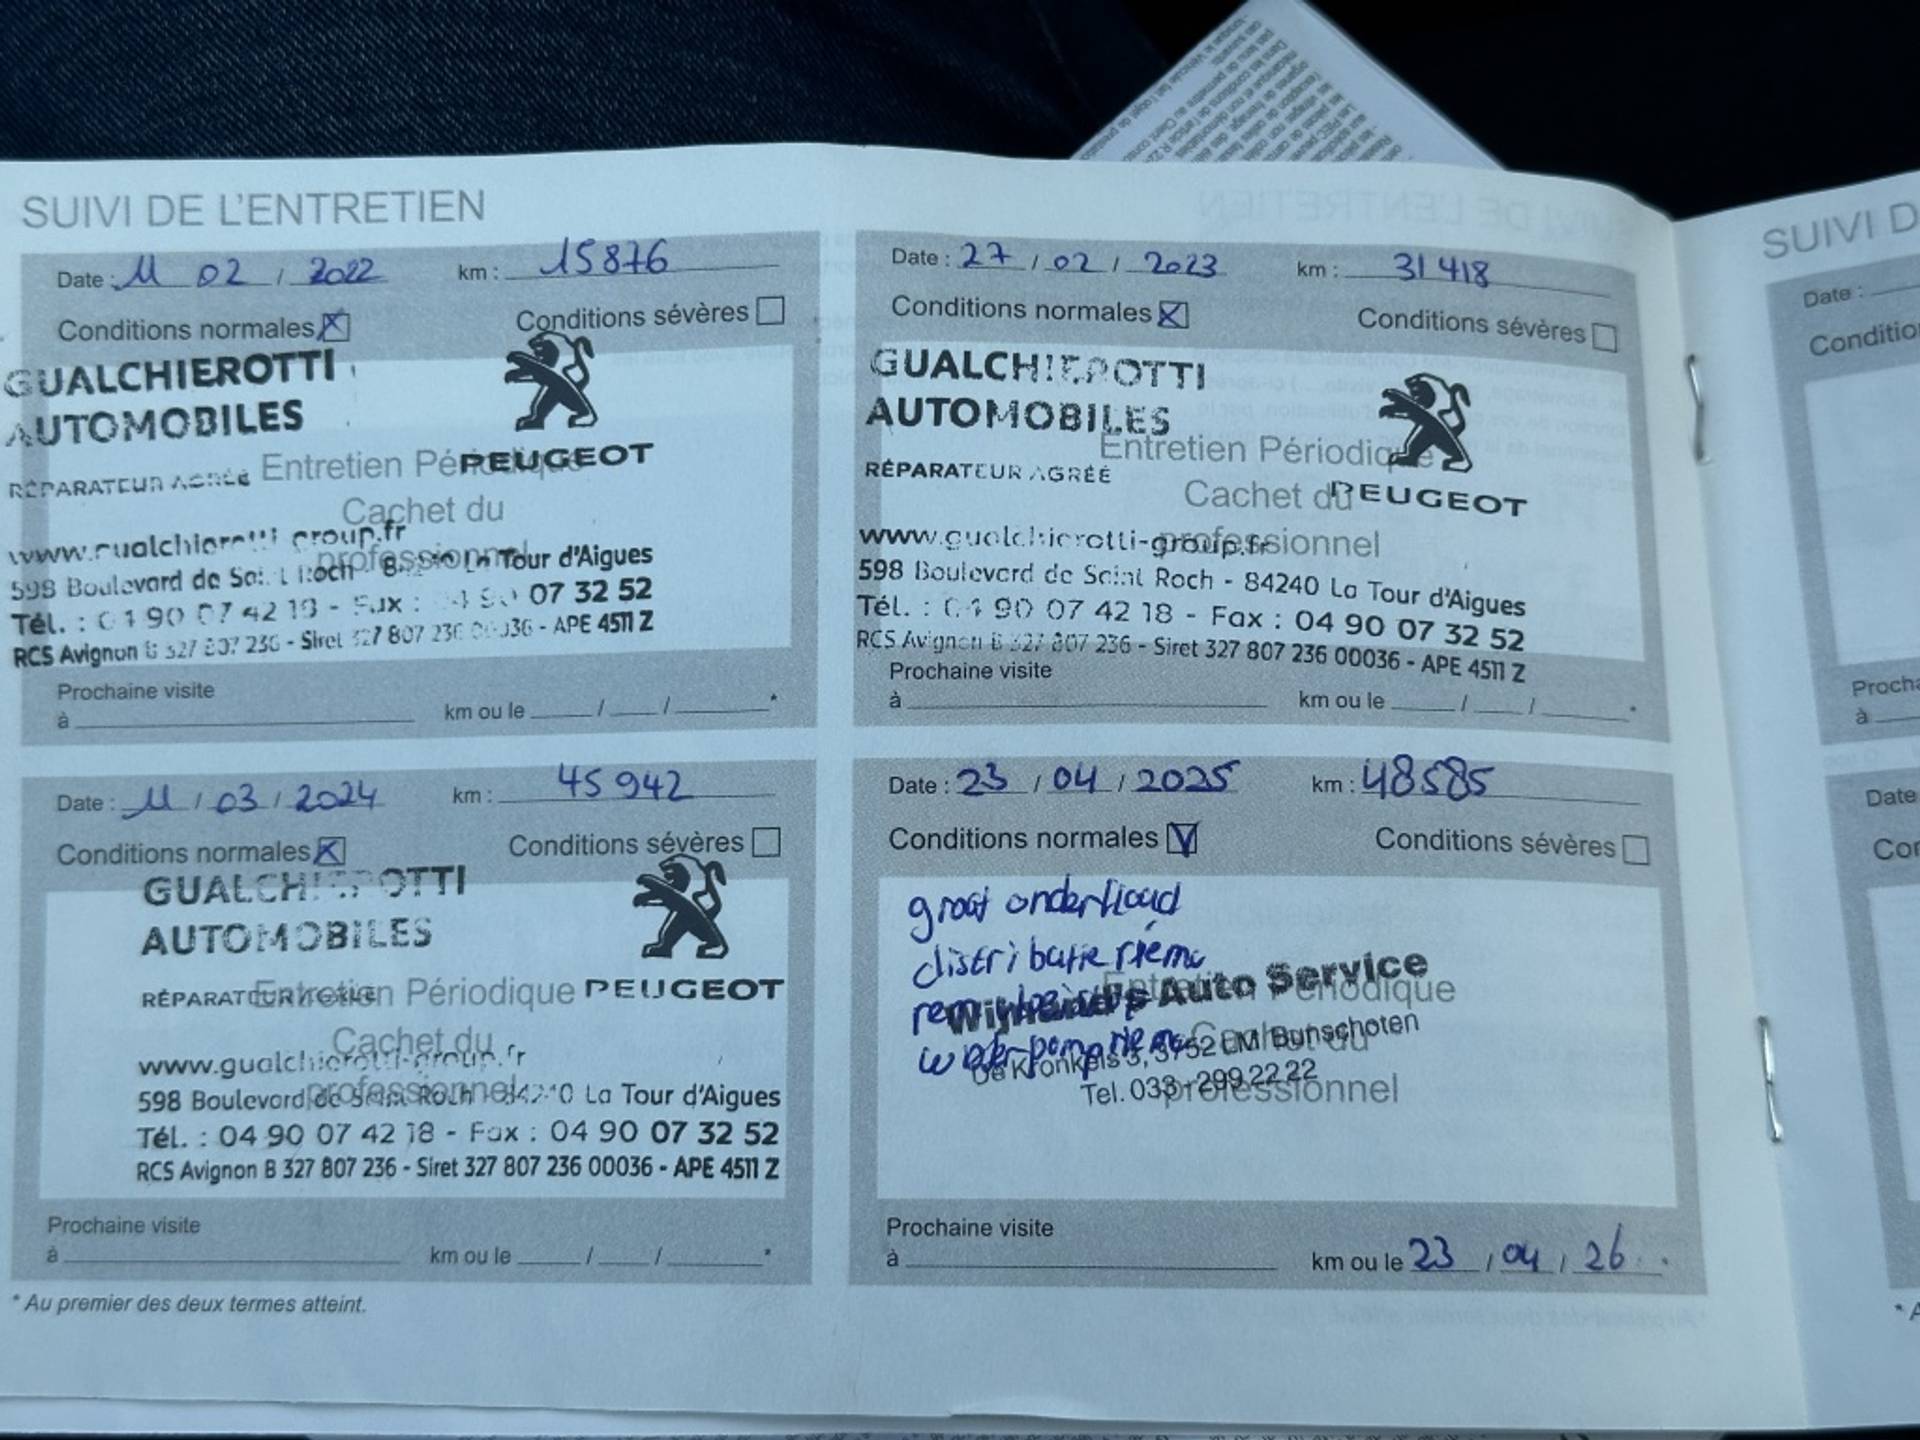 SUIVI DE L'ENTRETIEN
Date : 11 02 / 2022 km : 15876
Conditions normales Conditions sévères
GUALCHIEROTTI
AUTOMOBILES
RÉPARATEUR AGRÉÉ
PEUGEOT
Entretien Périodique
Cachet du
professionnel
www.gualchierotti-group.fr
598 Boulevard de Saint Roch - La Tour d'Aigues
Tél. : 04 90 07 42 18 - Fax : 04 90 07 32 52
RCS Avignon B 327 807 236 - Siret 327 807 236 00036 - APE 4511 Z
Prochaine visite
à km ou le / / *
Date : 27 / 02 / 2023 km : 31 418
Conditions normales Conditions sévères
GUALCHIEROTTI
AUTOMOBILES
RÉPARATEUR AGRÉÉ
PEUGEOT
Entretien Périodique
Cachet du
professionnel
www.gualchierotti-group.fr
598 Boulevard de Saint Roch - 84240 La Tour d'Aigues
Tél. : 04 90 07 42 18 - Fax : 04 90 07 32 52
RCS Avignon B 327 807 236 - Siret 327 807 236 00036 - APE 4511 Z
Prochaine visite
à km ou le / / *
Date : 11 / 03 / 2024 km : 45 942
Conditions normales Conditions sévères
GUALCHIEROTTI
AUTOMOBILES
RÉPARATEUR AGRÉÉ
PEUGEOT
Entretien Périodique
Cachet du
professionnel
www.gualchierotti-group.fr
598 Boulevard de Saint Roch - 84240 La Tour d'Aigues
Tél. : 04 90 07 42 18 - Fax : 04 90 07 32 52
RCS Avignon B 327 807 236 - Siret 327 807 236 00036 - APE 4511 Z
Prochaine visite
à km ou le / / *
* Au premier des deux termes atteint.
Date : 23 / 04 / 2025 km : 48585
Conditions normales Conditions sévères
groot onderhoud
distributie riem
waterpomp riem
Auto Service
De Kronkels 3, 3752 LM Bunschoten
Tel. 033 - 299 22 22
Entretien Périodique
Cachet du
professionnel
Prochaine visite
à km ou le 23 / 04 / 26
SUIVI D
Date :
Conditio
Procha
à
Date
Con
* A